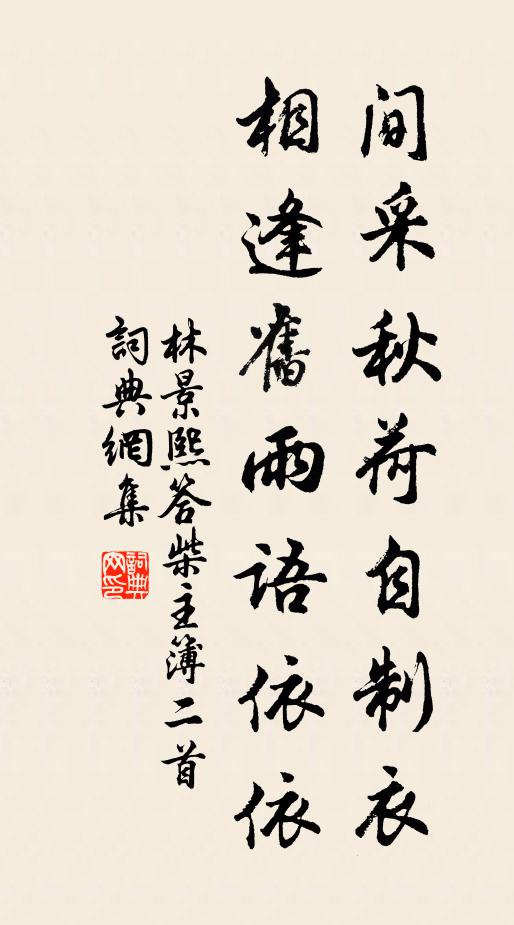 间采秋荷自制衣
相逢舊雨語依依
林景熙答柴主簿二首
詞典網集
詞典网印